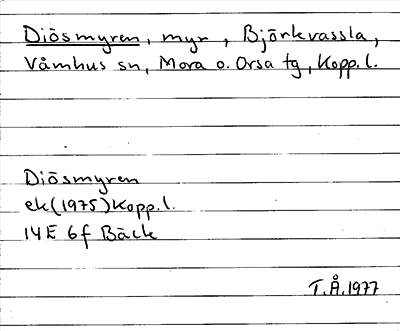 Diösmyren, myr, Björkvassla,
Våmhus sn, Mora o. Orsa tg, Kopp.l.
Diösmyren
ek(1975)Kopp.l.
14E 6f Bäck
T.Å.1977